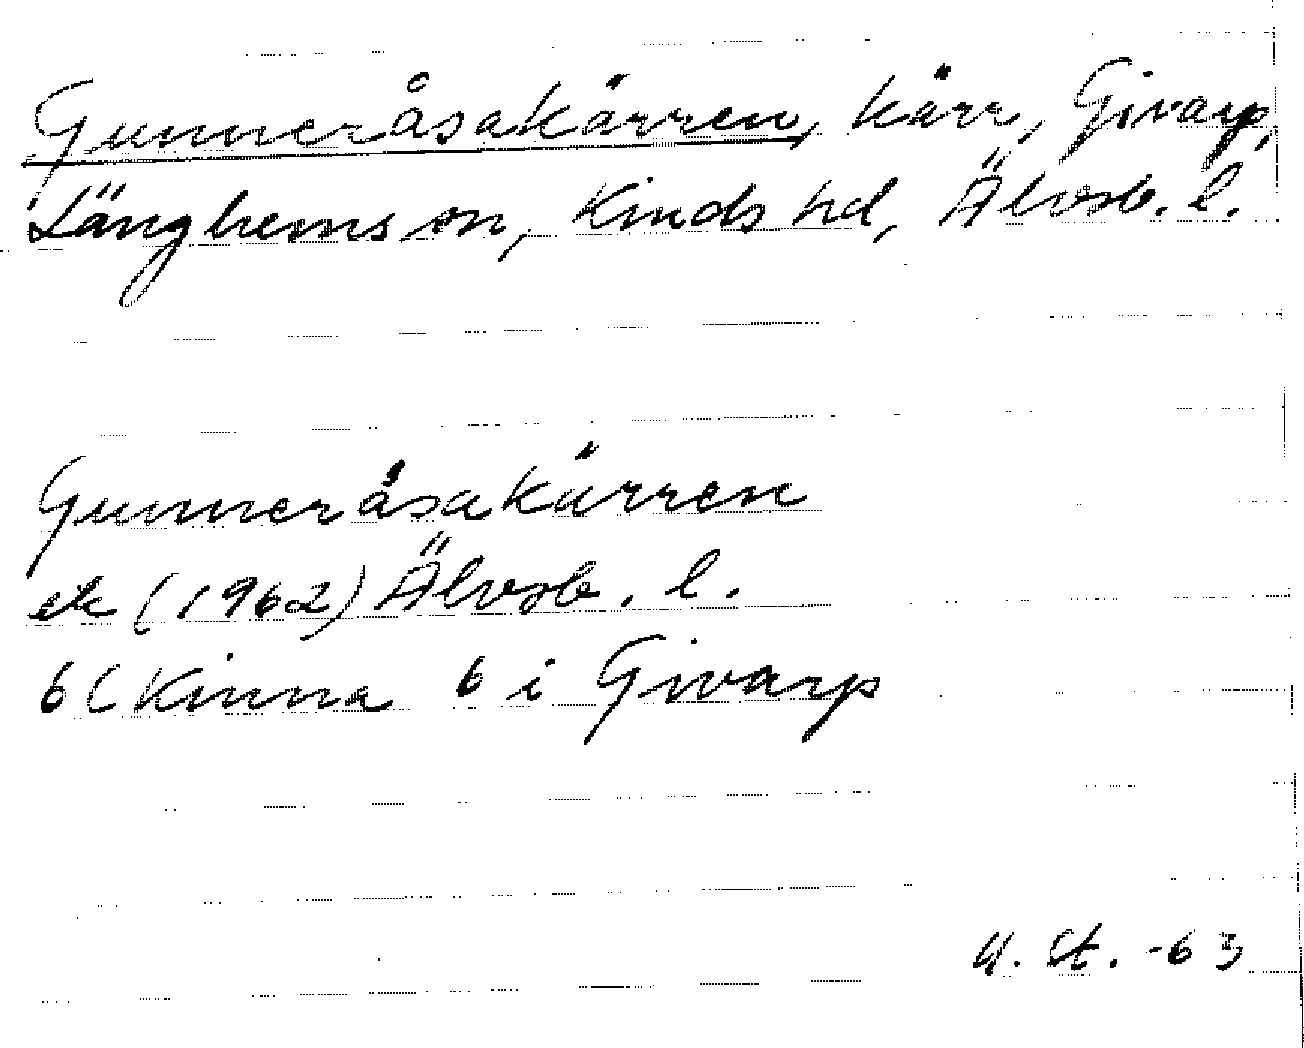 Gunneråsakärren, kärr, Givarp,
Länghems sn, Kinds hd, Älvsb. l.
Gunneråsakärren
ek (1962) Älvsb. l.
6C Kinna 6 i Givarp
St. -63